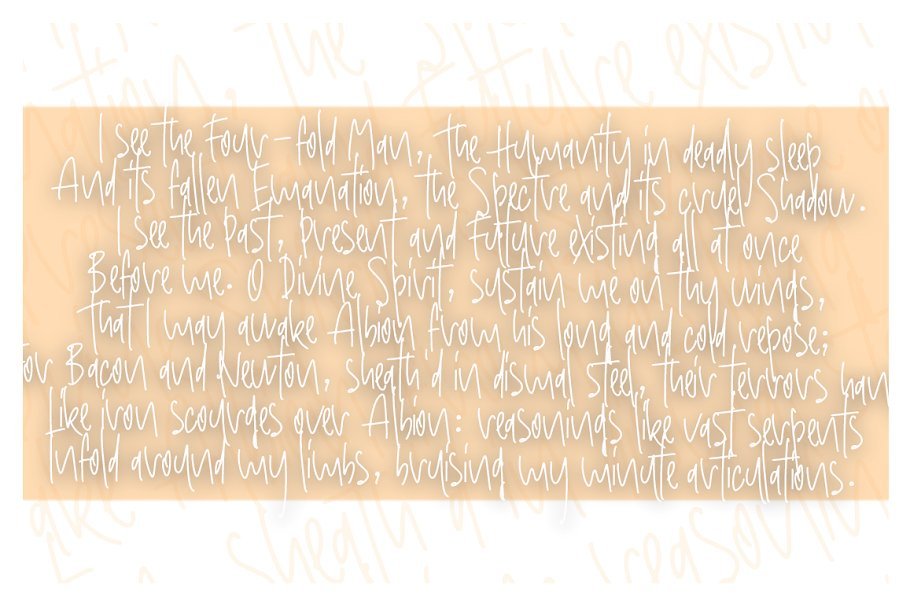 I see the Four-fold Man, the Humanity in deadly sleep
And its fallen Emanation, the Spectre and its cruel Shadow.
I see the Past, Present and Future existing all at once
Before me. O Divine Spirit, sustain me on thy wings,
That I may awake Albion from his long and cold repose;
for Bacon and Newton, sheath'd in dismal steel, their terrors han
Like iron scourges over Albion: reasonings like vast serpents
Infold around my limbs, bruising my minute articulations.